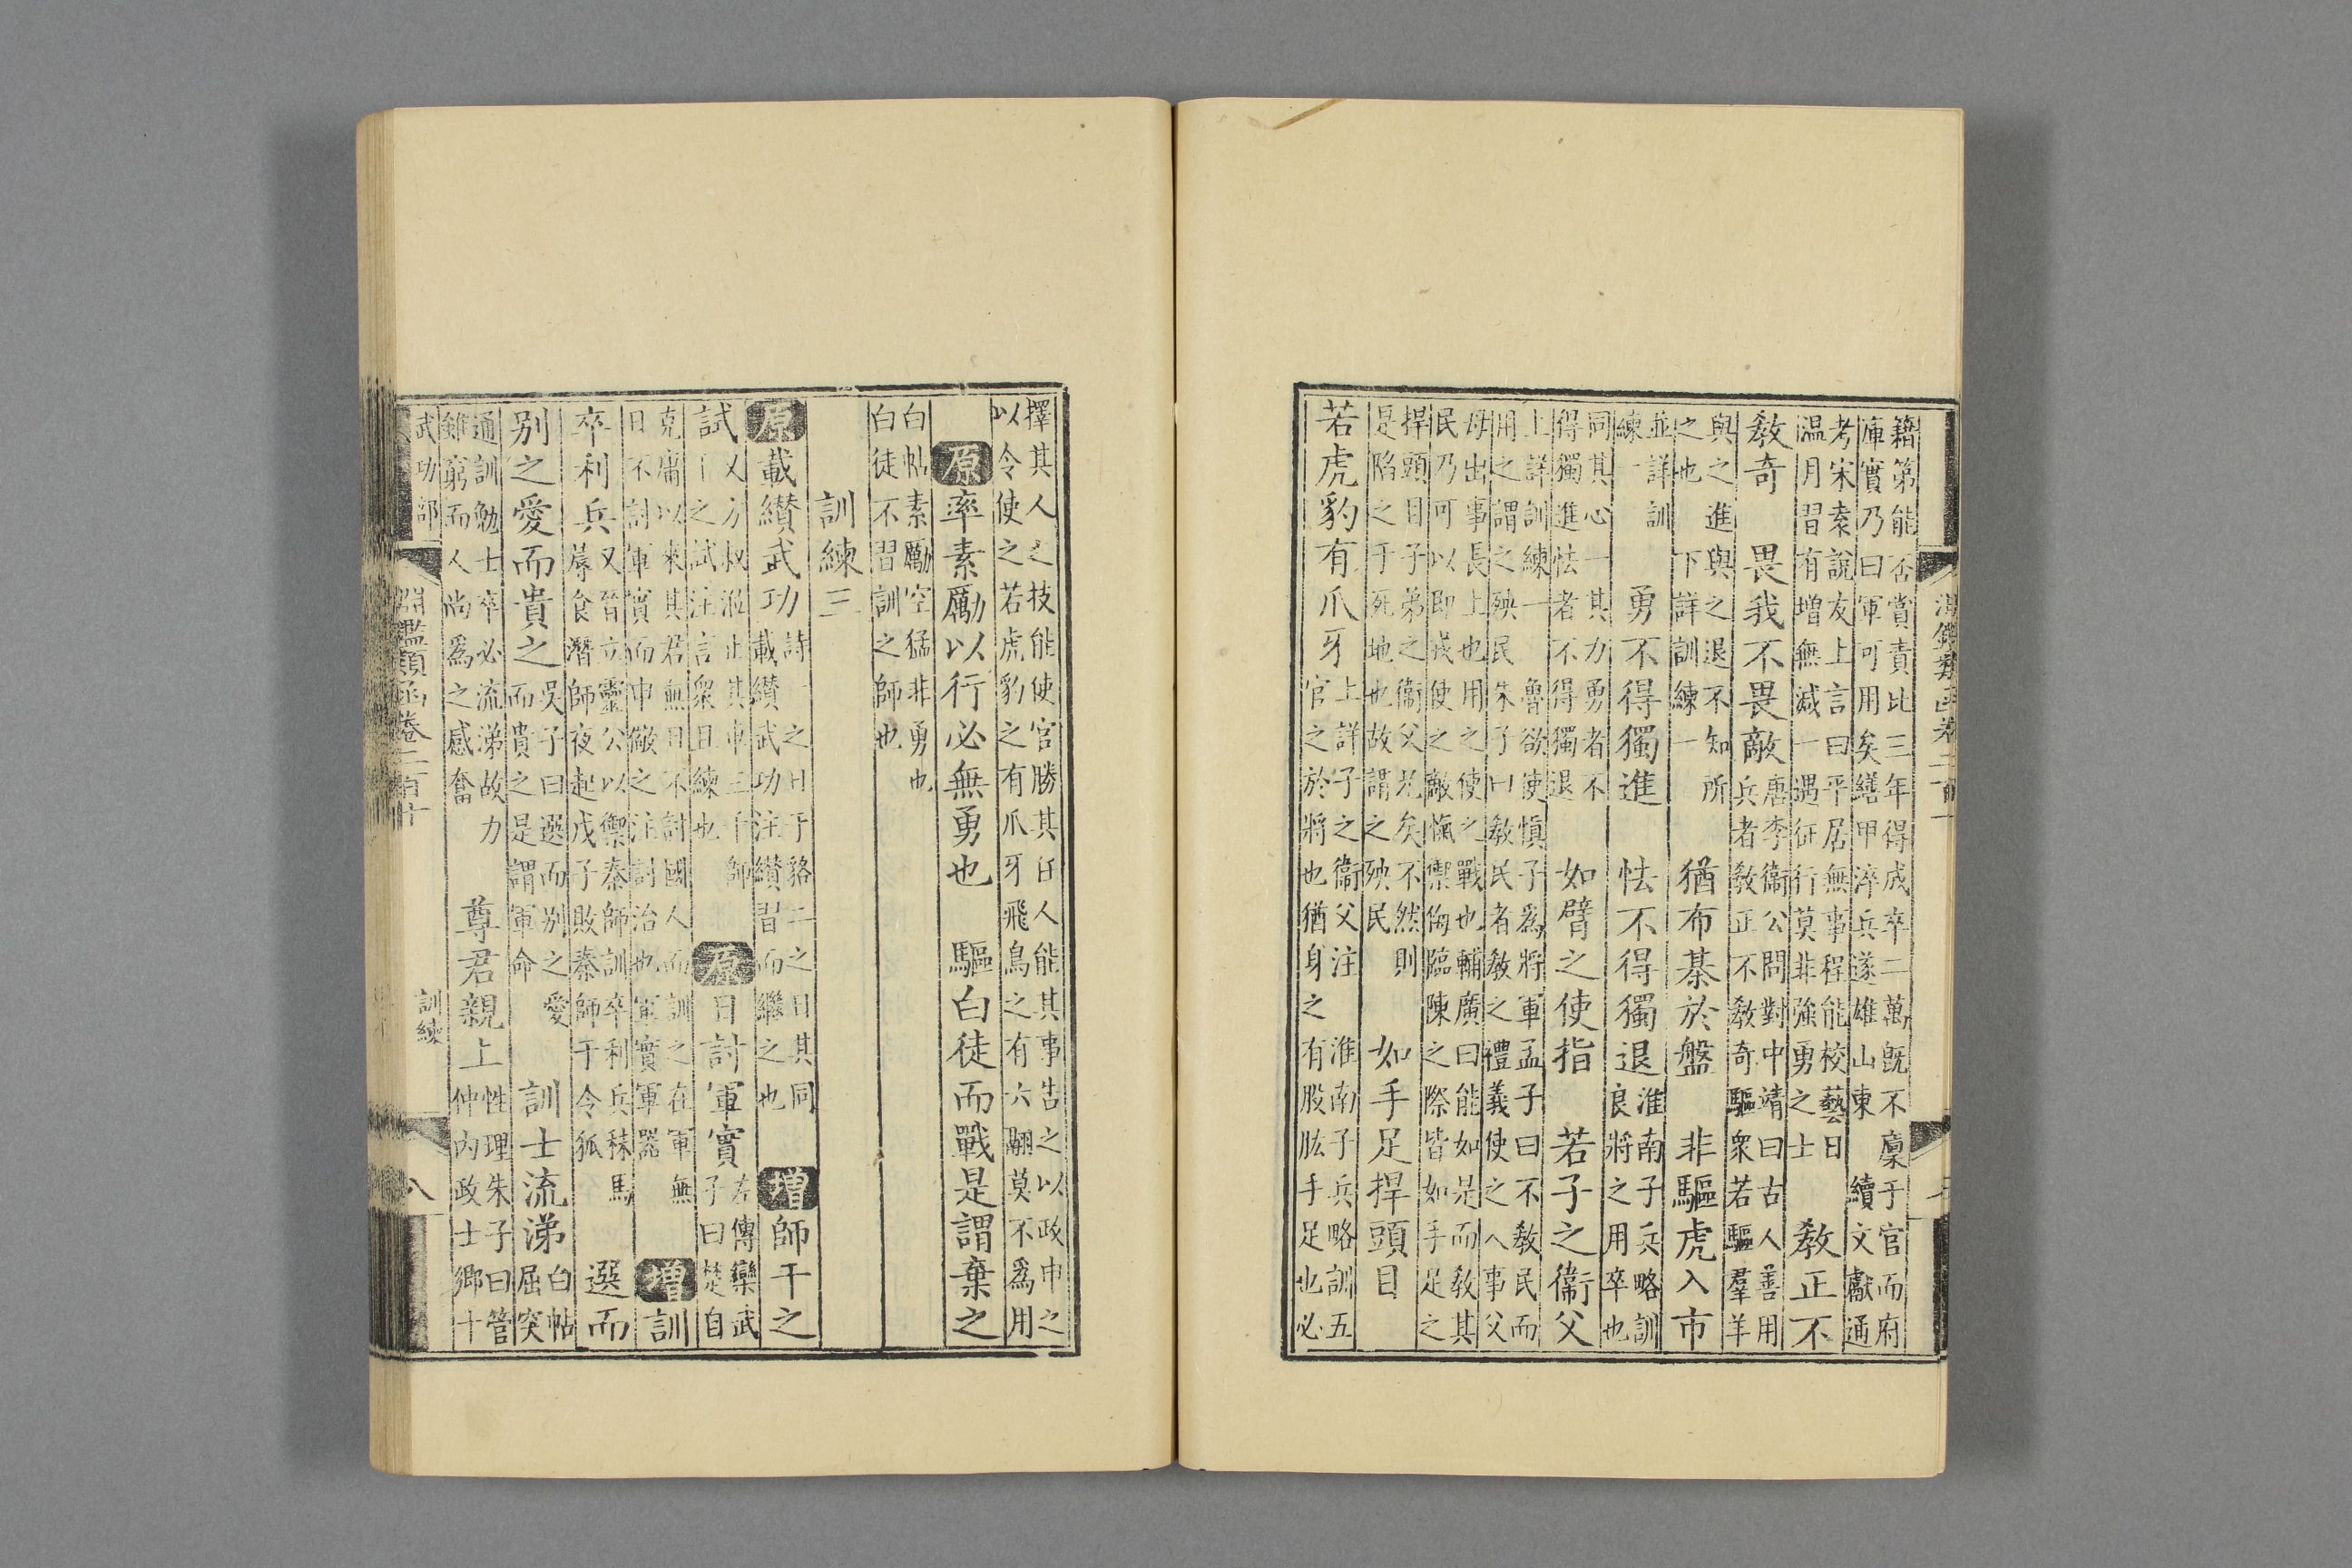 淵鑑類函卷二百十
籍第能否賞責比三年得成卒二萬既不廩于官而府
庫實乃曰軍可用矣繕甲淬兵遂雄山東 續文獻通
考宋袁說友上言曰平居無事程能校藝日
温月習有增無減一遇征行莫非強勇之士
教正不
教奇 畏我不畏敵
唐李衛公問對中靖曰古人善用
兵者教正不教奇驅衆若驅羣羊
與之進與之退不知所
之也 下詳訓練一
猶布棊於盤 非驅虎入市
並詳訓
練一
勇不得獨進 怯不得獨退
淮南子兵略訓
良將之用卒也
同其心一其力勇者不
得獨進怯者不得獨退
如臂之使指 若子之衞父
上詳訓練一 魯欲使慎子爲將軍孟子曰不教民而
用之謂之殃民 朱子曰教民者教之禮義使之入事父
母出事長上也用之使之戰也輔廣曰能如是而教其
民乃可以即戎使之敵愾禦侮臨陳之際皆如手足之
捍頭目子弟之衞父兄矣不然則
是陷之于死地也故謂之殃民
如手足捍頭目
若虎豹有爪牙
上詳子之衞父注 淮南子兵略訓五
官之於將也猶身之有股肱手足也必
擇其人之技能使官勝其任人能其事告之以政申之
以令使之若虎豹之有爪牙飛鳥之有六翮莫不爲用
原率素厲以行必無勇也 驅白徒而戰是謂棄之
白帖素勵空猛非勇也
白徒不習訓之師也
訓練三
原載纘武功
詩一之日于貉二之日其同
載纘武功注纘習而繼之也
增師干之
試
又方叔涖止其車三千師
干之試注言衆且練也
原日討軍實
左傳欒武
子曰楚自
克庸以來其君無日不討國人而訓之在軍無
日不討軍實而申儆之注討治也軍實軍器
增訓
卒利兵
又晉立靈公以禦秦師訓卒利兵秣馬
蓐食潛師夜起戊子敗秦師于令狐
選而
别之愛而貴之
吳子曰選而别之愛
而貴之是謂軍命
訓士流涕
白帖
屈突
通訓勉士卒必流涕故力
雖窮而人尚爲之感奮
尊君親上
性理朱子曰管
仲内政士鄉十
武功部
淵鑑類函卷二百十
訓練
八